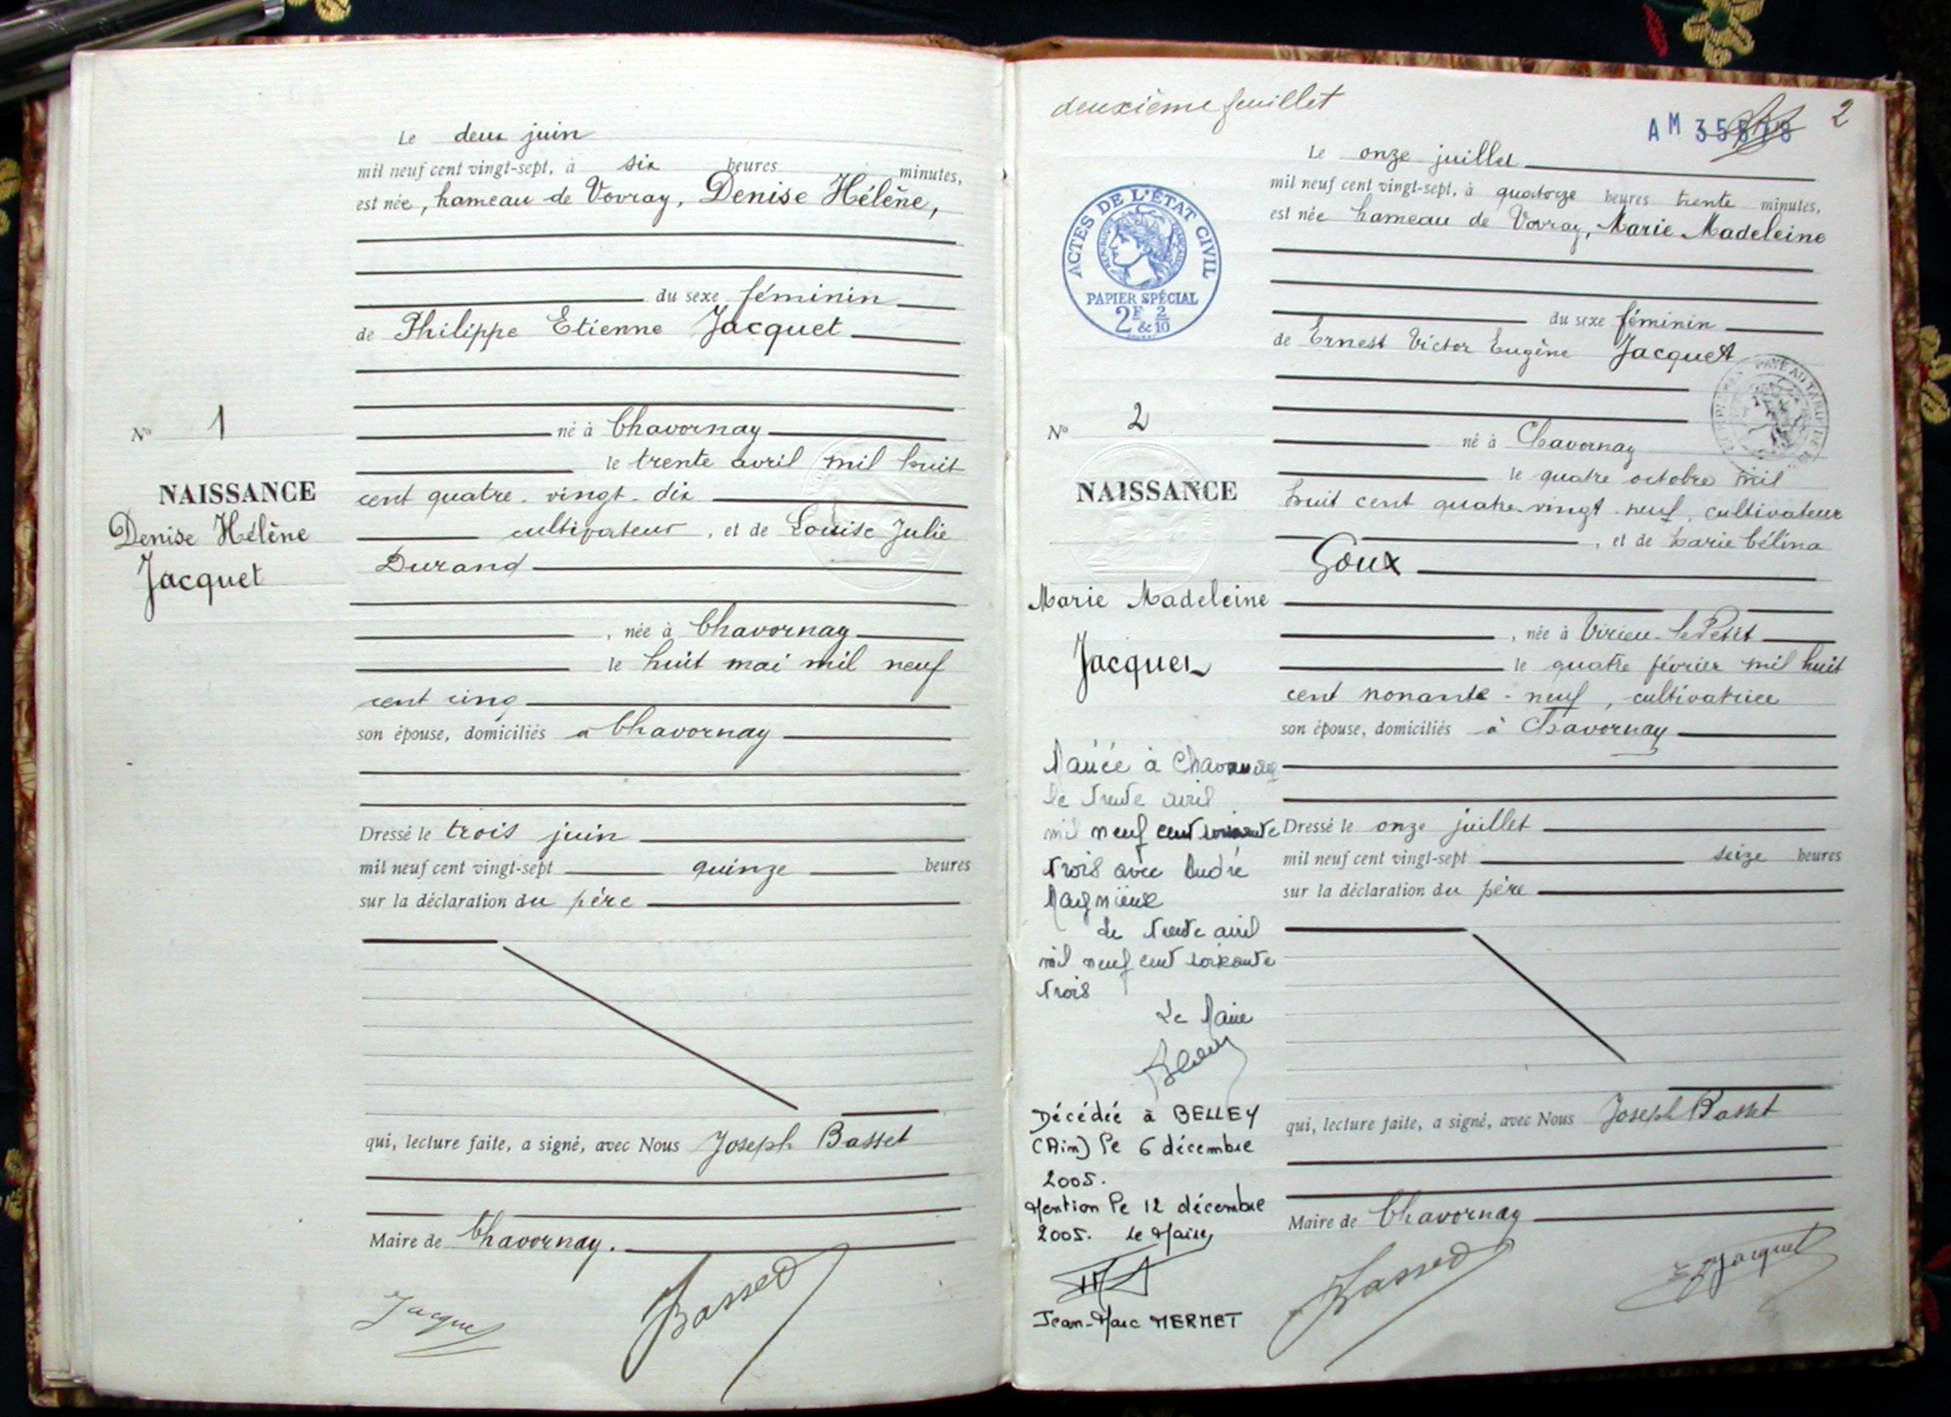 Le deux juin
mil neuf cent vingt-sept, à six heures minutes,
est née, hameau de Vovray, Denise Hélène,
du sexe féminin
de Philippe Etienne Jacquet
né à Chavornay
le trente avril mil huit
cent quatre-vingt-dix
cultivateur, et de Louise Julie
Durand
, née à Chavornay
le huit mai mil neuf
cent cinq
son épouse, domiciliés à Chavornay
Dressé le trois juin
mil neuf cent vingt-sept quinze heures
sur la déclaration du père
qui, lecture faite, a signé, avec Nous Joseph Basset
Maire de Chavornay.
Jacquet
Basset
No 1
NAISSANCE
Denise Hélène
Jacquet
deuxième feuillet
AM 35878
2
ACTES DE L'ÉTAT CIVIL
PAPIER SPÉCIAL
2F & 2/10
No 2
NAISSANCE
Marie Madeleine
Jacquet
Mariée à Chavornay
le trente avril
mil neuf cent soixante
trois avec André
le trente avril
mil neuf cent soixante
trois
Le Maire
Décédée à BELLEY
(Ain) le 6 décembre
2005.
Mention le 12 décembre
2005. Le Maire,
Jean-Marc MERMET
Le onze juillet
mil neuf cent vingt-sept, à quatorze heures trente minutes,
est née hameau de Vovray, Marie Madeleine
du sexe féminin
de Ernest Victor Eugène Jacquet
né à Chavornay
le quatre octobre mil
huit cent quatre-vingt-neuf, cultivateur
, et de Marie Célina
Goux
, née à Virieu-le-Petit
le quatre février mil huit
cent nonante-neuf, cultivatrice
son épouse, domiciliés à Chavornay
Dressé le onze juillet
mil neuf cent vingt-sept seize heures
sur la déclaration du père
qui, lecture faite, a signé, avec Nous Joseph Basset
Maire de Chavornay
Basset
E Jacquet